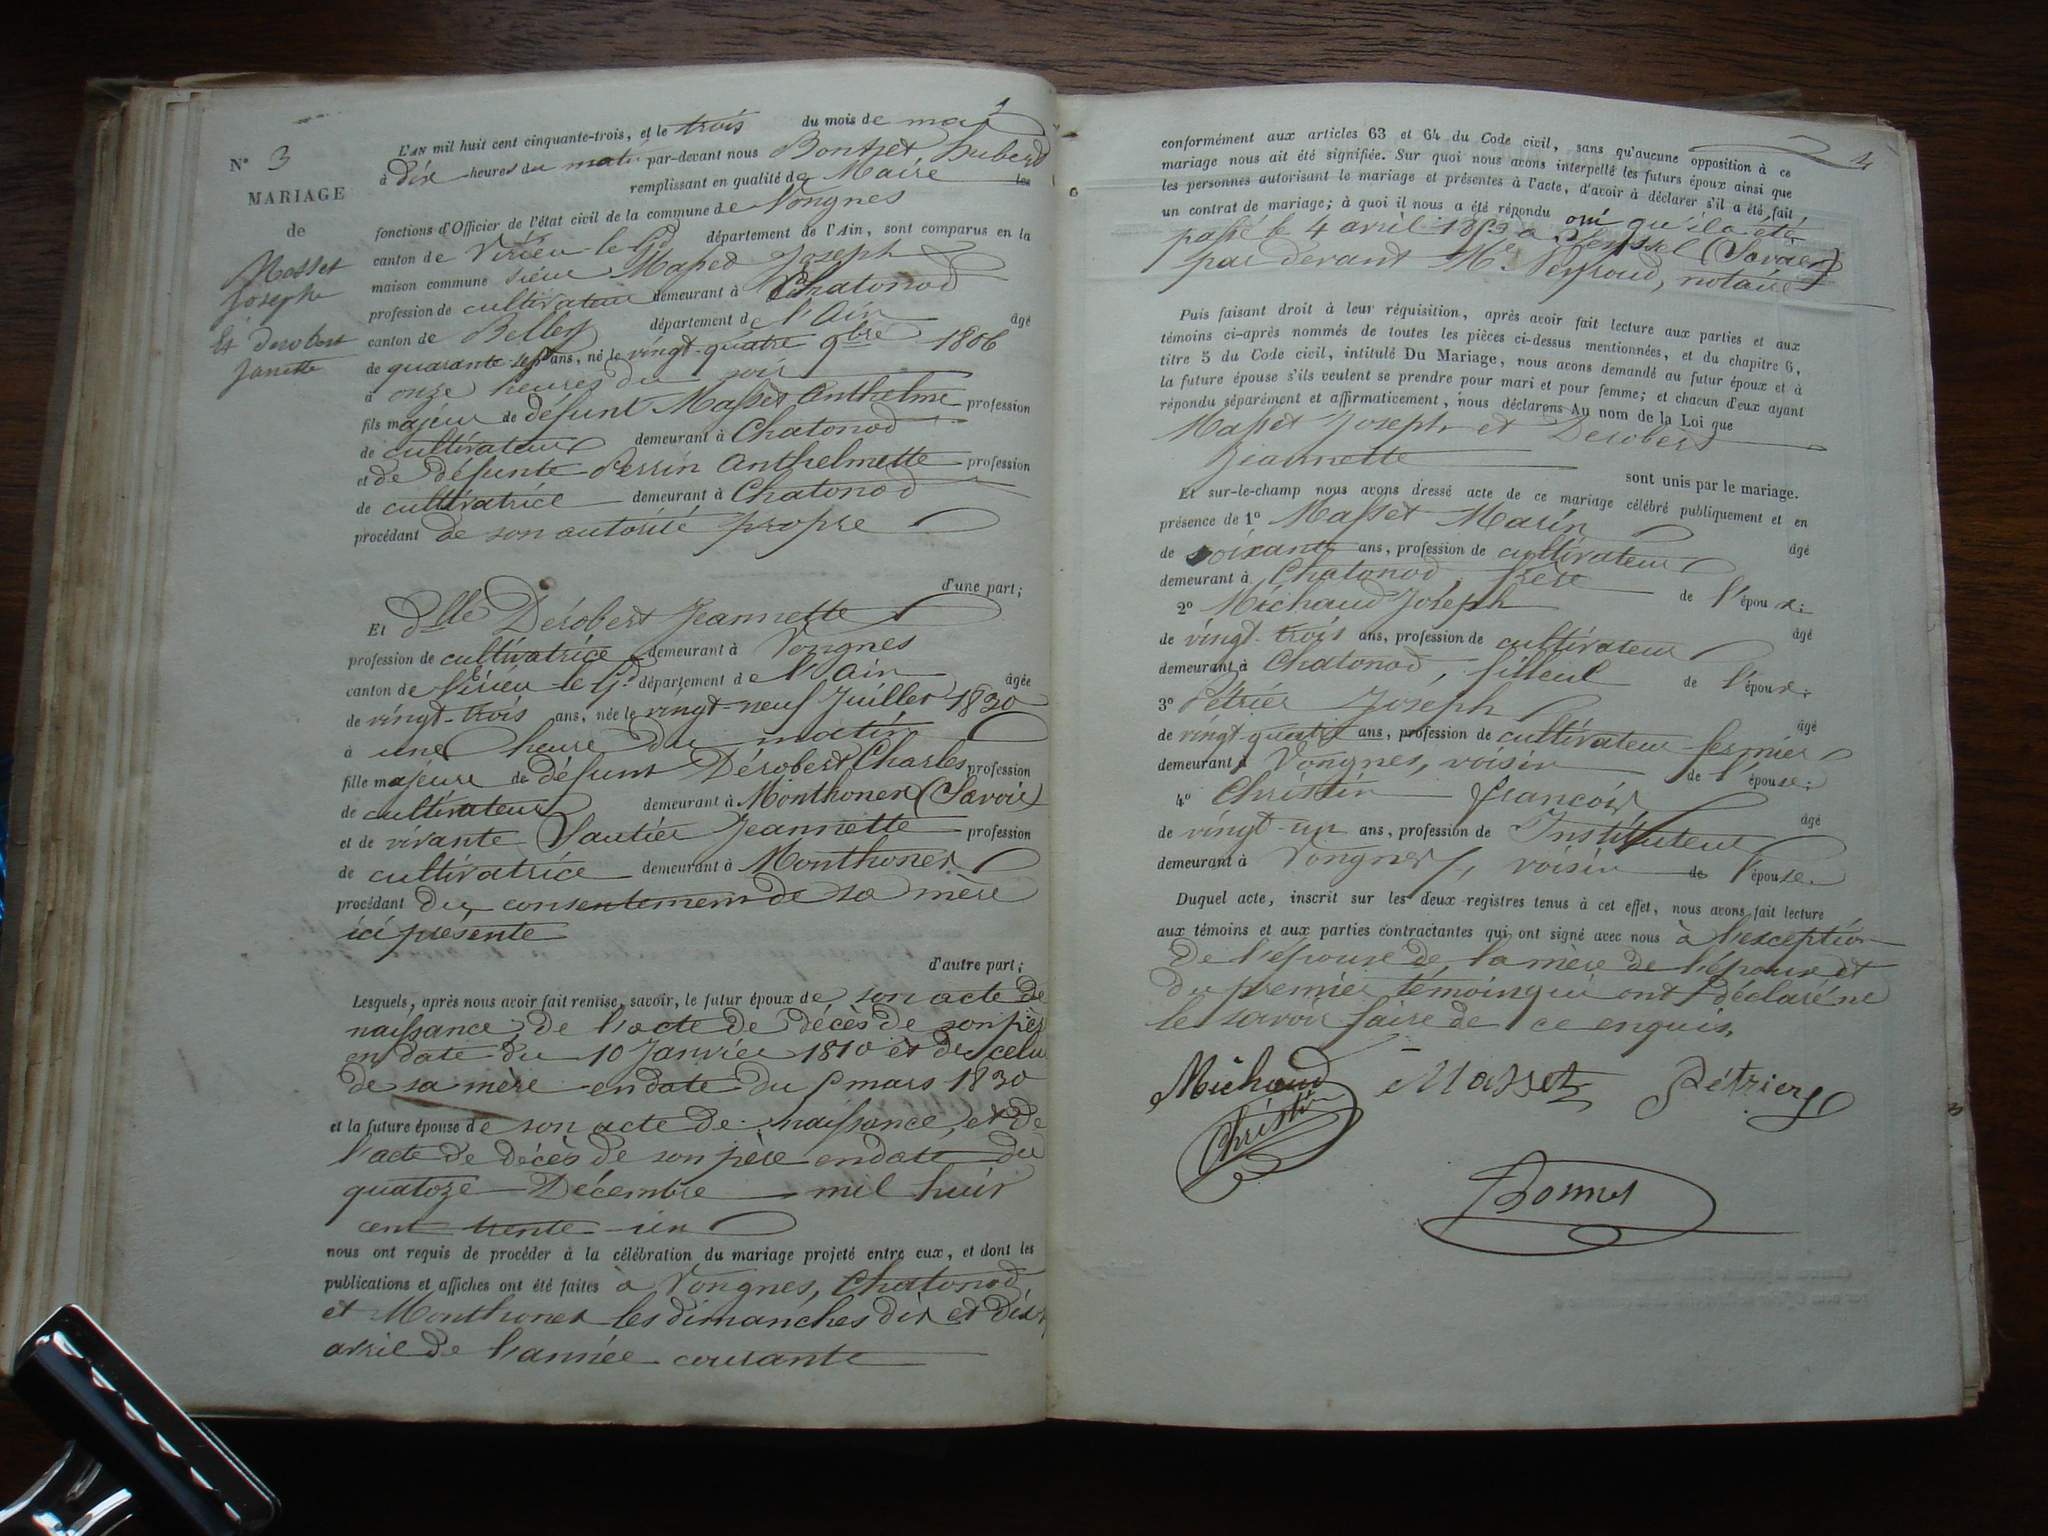 3
N° 3
MARIAGE
de
Masset
Joseph
Et Derobert
Janette
L'AN mil huit cent cinquante-trois, et le trois du mois de mai
à dix heures du matin par-devant nous Bonnet hubert
remplissant en qualité de Maire les
fonctions d'Officier de l'état civil de la commune de Vongnes
canton de Virieu-le-Gd département de l'Ain, sont comparus en la
maison commune sieur Masset Joseph
profession de cultivateur demeurant à Chatonod
canton de Belley département de l'Ain âgé
de quarante-sept ans, né le vingt-quatre 9bre 1806
à onze heures du soir
fils majeur de défunt Masset Anthelme profession
de cultivateur demeurant à Chatonod
et de défunte Perrin Anthelmette profession
de cultivatrice demeurant à Chatonod
procédant de son autorité propre
d'une part;
Et dlle Dérobert Jeannette
profession de cultivatrice demeurant à Vongnes
canton de Virieu-le-Gd département de l'Ain âgée
de vingt-trois ans, née le vingt neuf Juillet 1830
à une heure du matin
fille majeure de défunt Dérobert Charles profession
de cultivateur demeurant à Monthonex (Savoie)
et de vivante Vautier Jeannette profession
de cultivatrice demeurant à Monthonex
procédant du consentement de sa mère
ici présente
d'autre part;
Lesquels, après nous avoir fait remise, savoir, le futur époux de son acte de
naissance, de l'acte de décès de son père
en date du 10 Janvier 1810 et de celui
de sa mère en date du mars 1830
et la future épouse de son acte de naissance, et de
l'acte de décès de son père en date du
quatorze Décembre mil huit
cent trente-un
nous ont requis de procéder à la célébration du mariage projeté entre eux, et dont les
publications et affiches ont été faites à Vongnes, Chatonod
et Monthonex les dimanches dix et dix
avril de l'année courante
4
conformément aux articles 63 et 64 du Code civil, sans qu'aucune opposition à ce
mariage nous ait été signifiée. Sur quoi nous avons interpellé les futurs époux ainsi que
les personnes autorisant le mariage et présentes à l'acte, d'avoir à déclarer s'il a été fait
un contrat de mariage; à quoi il nous a été répondu oui qu'il a été
passé le 4 avril 1853 à Seyssel (Savoie)
par devant Me notaire
Puis faisant droit à leur réquisition, après avoir fait lecture aux parties et aux
témoins ci-après nommés de toutes les pièces ci-dessus mentionnées, et du chapitre 6,
titre 5 du Code civil, intitulé Du Mariage, nous avons demandé au futur époux et à
la future épouse s'ils veulent se prendre pour mari et pour femme; et chacun d'eux ayant
répondu séparément et affirmativement, nous déclarons Au nom de la Loi que
Masset Joseph et Derobert
Jeannette
sont unis par le mariage.
Et sur-le-champ nous avons dressé acte de ce mariage célébré publiquement et en
présence de 1° Masset Marin
âgé
de soixante ans, profession de cultivateur
demeurant à Chatonod, frère de l'époux;
2° Michaud Joseph
âgé
de vingt-trois ans, profession de cultivateur
demeurant à Chatonod, filleul de l'époux;
3° Pétrier Joseph
âgé
de vingt quatre ans, profession de cultivateur fermier
demeurant à Vongnes, voisin de l'épouse;
4° Christin françois
âgé
de vingt-un ans, profession de Instituteur
demeurant à Vongnes, voisin de l'épouse.
Duquel acte, inscrit sur les deux registres tenus à cet effet, nous avons fait lecture
aux témoins et aux parties contractantes qui ont signé avec nous à l'exception
de l'épouse de la mère de l'épouse et
du premier témoin qui ont déclaré ne
le savoir faire de ce enquis.
Michaud Masset Pétrier
Christin
Bonnet